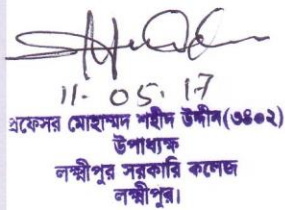 11. 05. 17
প্রফেসর মোহাম্মদ শহীদ উদ্দীন(৩৪০২)
উপাধ্যক্ষ
লক্ষ্মীপুর সরকারি কলেজ
লক্ষ্মীপুর।